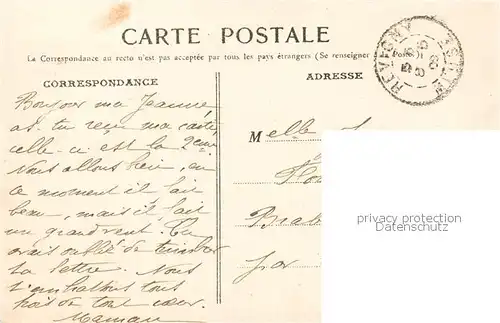 CARTE POSTALE
La Correspondance au recto n'est pas acceptée par tous les pays étrangers (Se renseigner Poste)
CORRESPONDANCE
ADRESSE
REVIGNY
Bonjour ma Jeanne
as. tu reçu ma carte
celle-ci est la 2eme
Nous allons bien, en
ce moment il fait
beau, mais il fait
un grand vent. Tu
avais oublié de timbrer
ta lettre. Nous
t'embrassons tous
de tout cœur.
Maman
Melle
par
privacy protection
Datenschutz